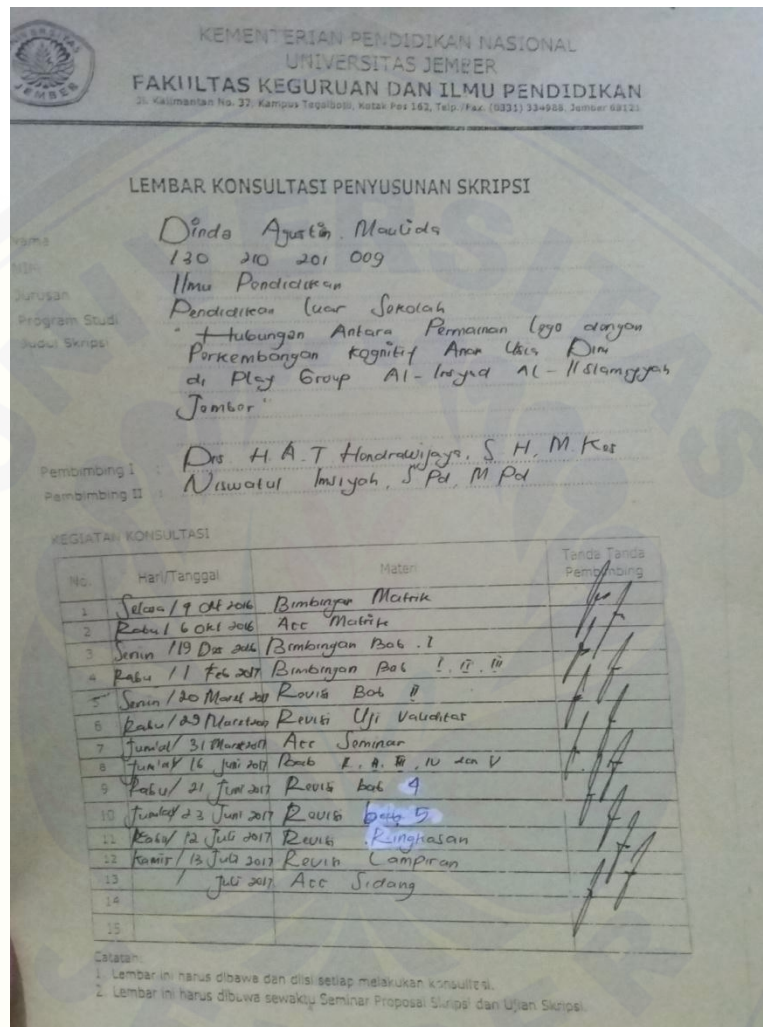 KEMENTERIAN PENDIDIKAN NASIONAL
UNIVERSITAS JEMBER
FAKULTAS KEGURUAN DAN ILMU PENDIDIKAN
Jl. Kalimantan No. 37, Kampus Tegalboto, Kotak Pos 162, Telp./Fax. (0331) 334988, Jember 68121
LEMBAR KONSULTASI PENYUSUNAN SKRIPSI
Nama Dinda Agustin Maulida
NIM 130 210 201 009
Jurusan Ilmu Pendidikan
Program Studi Pendidikan Luar Sekolah
Judul Skripsi "Hubungan Antara Permainan Lego dengan
Perkembangan Kognitif Anak Usia Dini
di Play Group Al-Irsyad Al-Islamiyyah
Jember"
Pembimbing I : Drs. H. A. T Hendrawijaya, S.H, M.Kes
Pembimbing II : Niswatul Imsiyah, S.Pd, M.Pd
KEGIATAN KONSULTASI
No. Hari/Tanggal Materi Tanda Tanda Pembimbing
1 Selasa / 9 Okt 2016 Bimbingan Matrik
2 Rabu / 6 Okt 2016 Acc Matrik
3 Senin / 19 Des 2016 Bimbingan Bab. I
4 Rabu / 1 Feb 2017 Bimbingan Bab I. II. III
5 Senin / 20 Maret 2017 Revisi Bab II
6 Rabu / 29 Maret 2017 Revisi Uji Validitas
7 Jum'at / 31 Maret 2017 Acc Seminar
8 Jum'at / 16 Juni 2017 Bab I. II. III, IV dan V
9 Rabu / 21 Juni 2017 Revisi bab 4
10 Jum'at / 23 Juni 2017 Revisi bab 5
11 Rabu / 12 Juli 2017 Revisi Ringkasan
12 Kamis / 13 Juli 2017 Revisi Lampiran
13 / Juli 2017 Acc Sidang
14
15
Catatan:
1. Lembar ini harus dibawa dan diisi setiap melakukan konsultasi.
2. Lembar ini harus dibawa sewaktu Seminar Proposal Skripsi dan Ujian Skripsi.